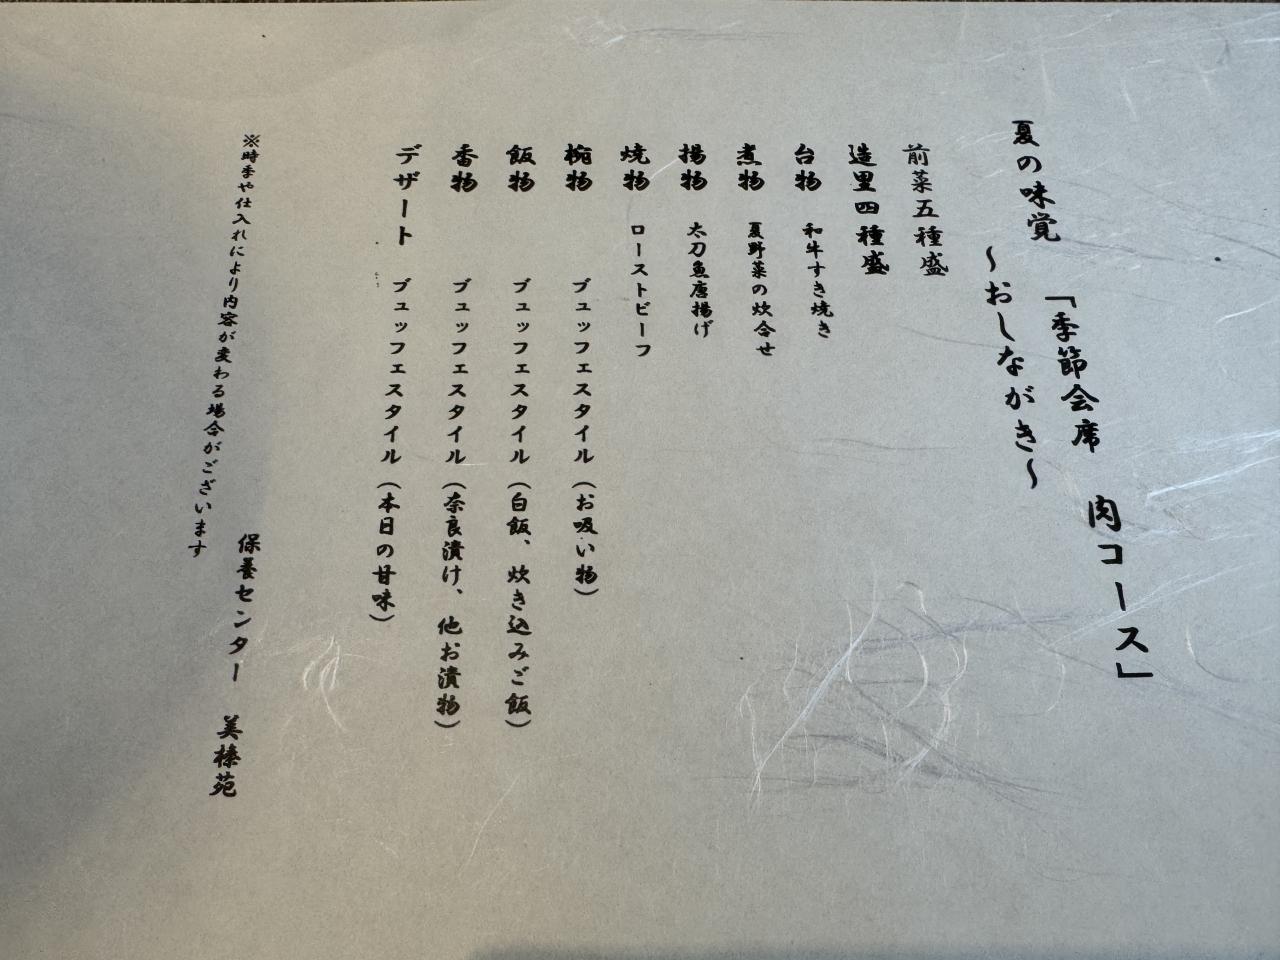 夏の味覚 「季節会席 肉コース」
～おしながき～
前菜五種盛
造里四種盛
台物 和牛すき焼き
煮物 夏野菜の炊合せ
揚物 太刀魚唐揚げ
焼物 ローストビーフ
椀物 ブュッフェスタイル（お吸い物）
飯物 ブュッフェスタイル（白飯、炊き込みご飯）
香物 ブュッフェスタイル（奈良漬け、他お漬物）
デザート ブュッフェスタイル（本日の甘味）
※時季や仕入れにより内容が変わる場合がございます
保養センター 美榛苑